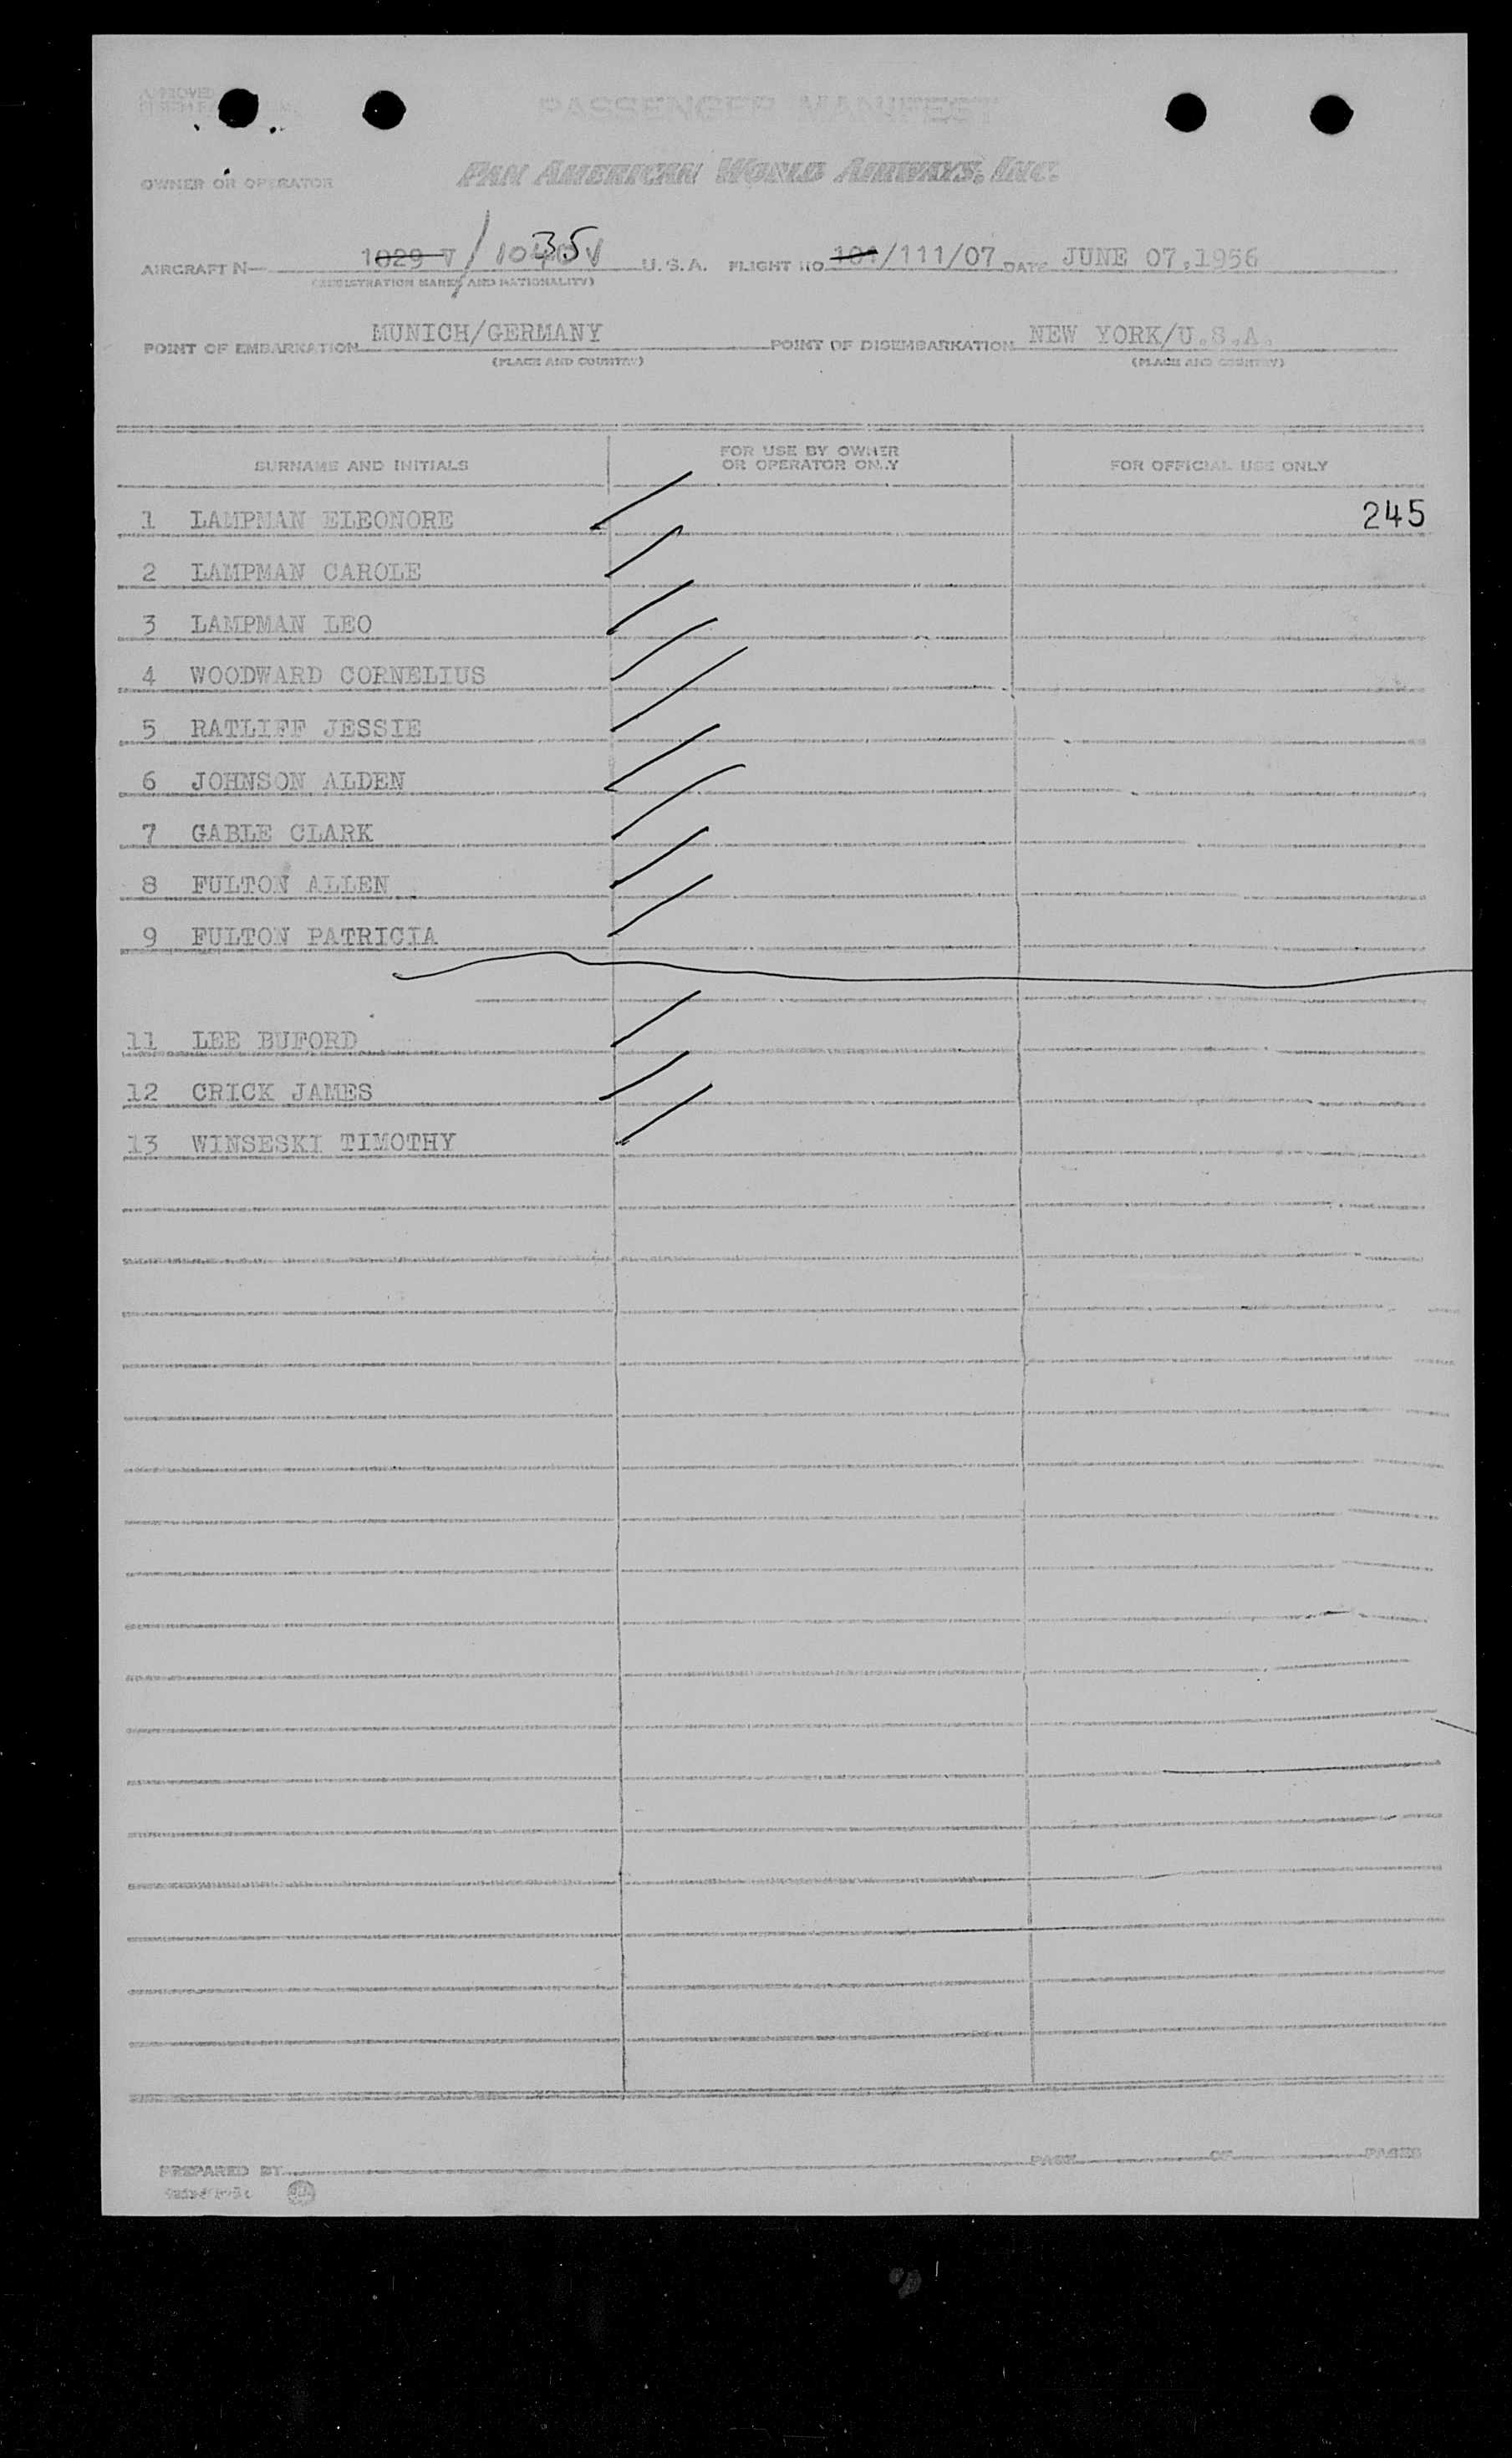 APPROVED
PASSENGER MANIFEST
OWNER OR OPERATOR PAN AMERICAN WORLD AIRWAYS, INC.
AIRCRAFT N— 1029 V / 1035V U.S.A. FLIGHT NO 101/111/07 DATE JUNE 07,1956
(REGISTRATION MARKS AND NATIONALITY)
POINT OF EMBARKATION MUNICH/GERMANY POINT OF DISEMBARKATION NEW YORK/U.S.A.
(PLACE AND COUNTRY) (PLACE AND COUNTRY)
SURNAME AND INITIALS FOR USE BY OWNER OR OPERATOR ONLY FOR OFFICIAL USE ONLY
1 LAMPMAN ELEONORE 245
2 LAMPMAN CAROLE
3 LAMPMAN LEO
4 WOODWARD CORNELIUS
5 RATLIFF JESSIE
6 JOHNSON ALDEN
7 GABLE CLARK
8 FULTON ALLEN
9 FULTON PATRICIA
11 LEE BUFORD
12 CRICK JAMES
13 WINSESKI TIMOTHY
PREPARED BY PAGE OF PAGES